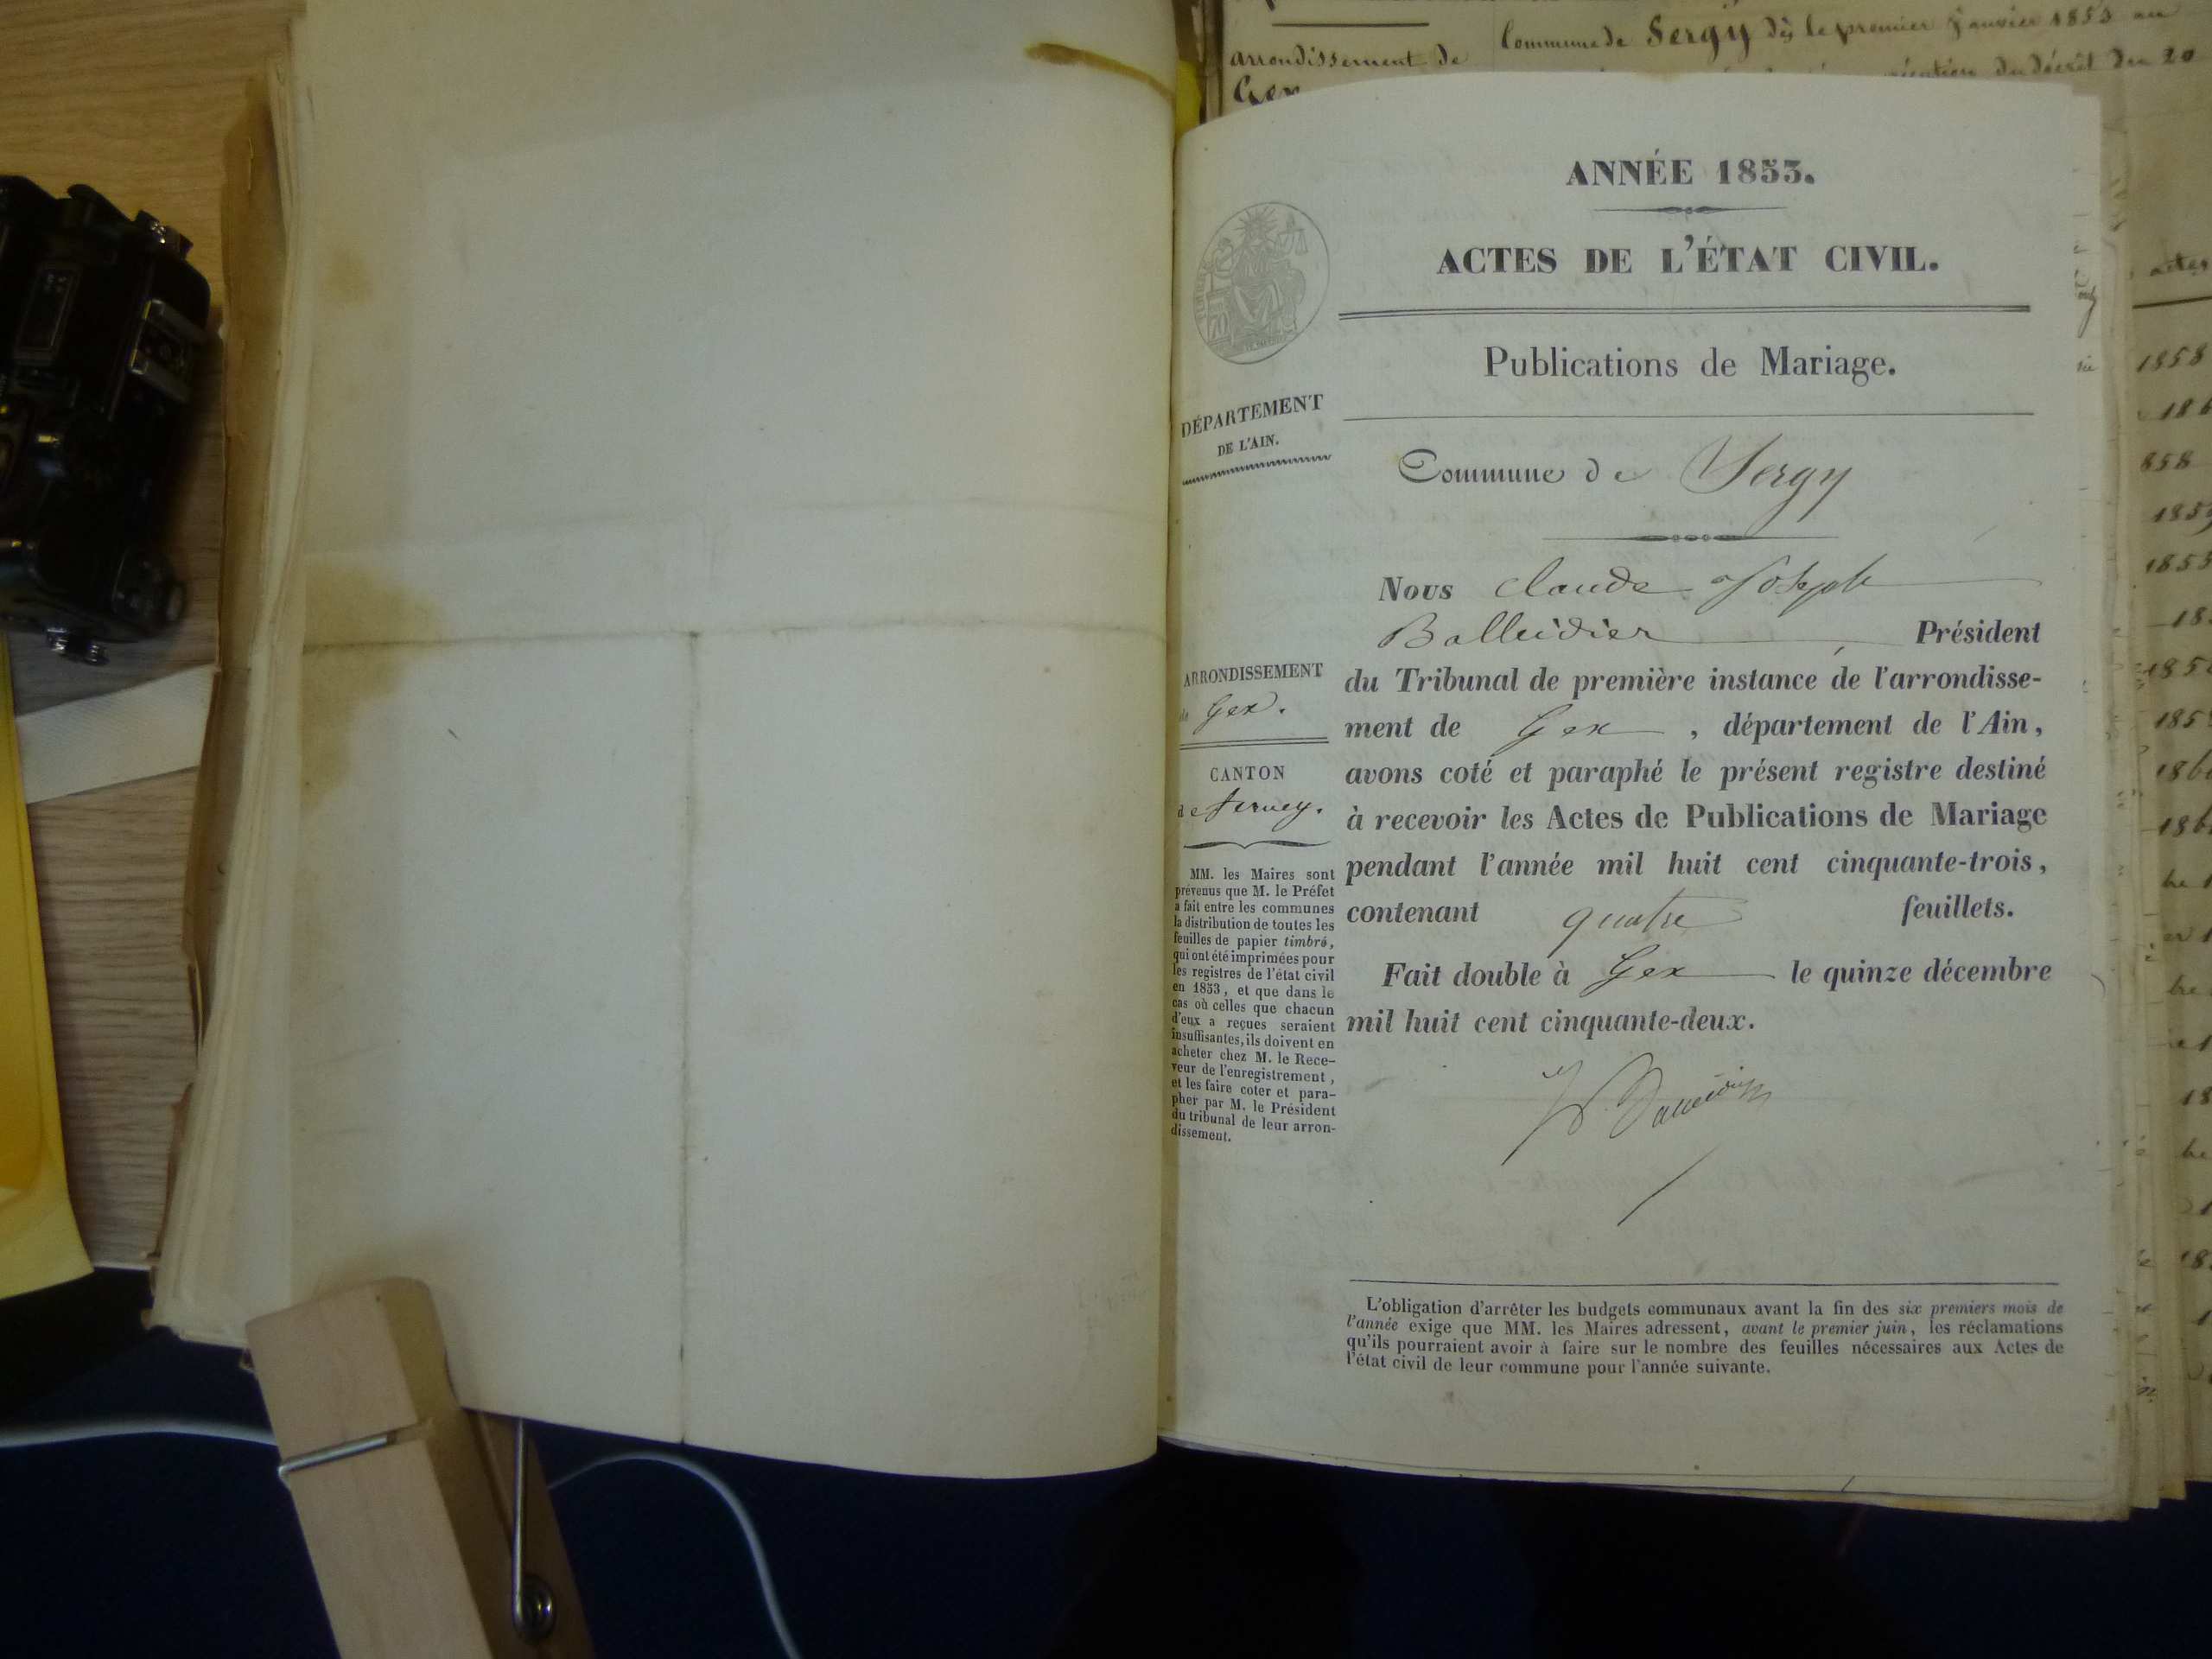 arrondissement de
Gex
Commune de Sergy dès le premier Janvier 1853 au
du décret du 20
ANNÉE 1853.
ACTES DE L'ÉTAT CIVIL.
Publications de Mariage.
DÉPARTEMENT
DE L'AIN.
Commune de Sergy
Nous Claude Joseph
Balleidier Président
du Tribunal de première instance de l'arrondisse-
ment de Gex , département de l'Ain,
avons coté et paraphé le présent registre destiné
à recevoir les Actes de Publications de Mariage
pendant l'année mil huit cent cinquante-trois,
contenant quatre feuillets.
Fait double à Gex le quinze décembre
mil huit cent cinquante-deux.
ARRONDISSEMENT
de Gex.
CANTON
de ferney.
MM. les Maires sont
prévenus que M. le Préfet
a fait entre les communes
la distribution de toutes les
feuilles de papier timbré,
qui ont été imprimées pour
les registres de l'état civil
en 1853, et que dans le
cas où celles que chacun
d'eux a reçues seraient
insuffisantes, ils doivent en
acheter chez M. le Rece-
veur de l'enregistrement,
et les faire coter et para-
pher par M. le Président
du tribunal de leur arron-
dissement.
L'obligation d'arrêter les budgets communaux avant la fin des six premiers mois de
l'année exige que MM. les Maires adressent, avant le premier juin, les réclamations
qu'ils pourraient avoir à faire sur le nombre des feuilles nécessaires aux Actes de
l'état civil de leur commune pour l'année suivante.
actes
1858
858
1859
1853